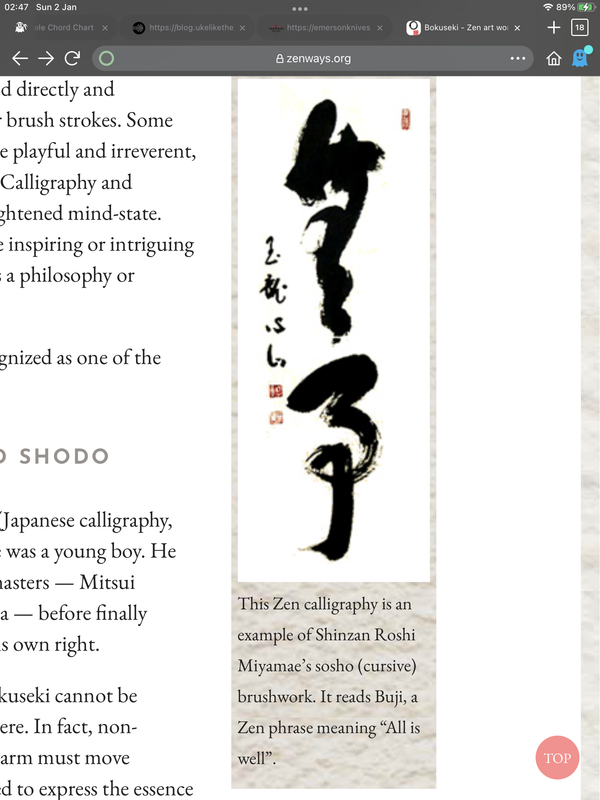 02:47 Sun 2 Jan
89%
ele Chord Chart
https://blog.ukelikethe
https://emersonknives
Bokuseki - Zen art wo
18
zenways.org
d directly and
r brush strokes. Some
e playful and irreverent,
Calligraphy and
ghtened mind-state.
e inspiring or intriguing
s a philosophy or
gnized as one of the
O SHODO
(Japanese calligraphy,
e was a young boy. He
masters — Mitsui
a — before finally
is own right.
kuseki cannot be
ere. In fact, non-
arm must move
ed to express the essence
無事
玉龍心山
This Zen calligraphy is an
example of Shinzan Roshi
Miyamae’s sosho (cursive)
brushwork. It reads Buji, a
Zen phrase meaning “All is
well”.
TOP